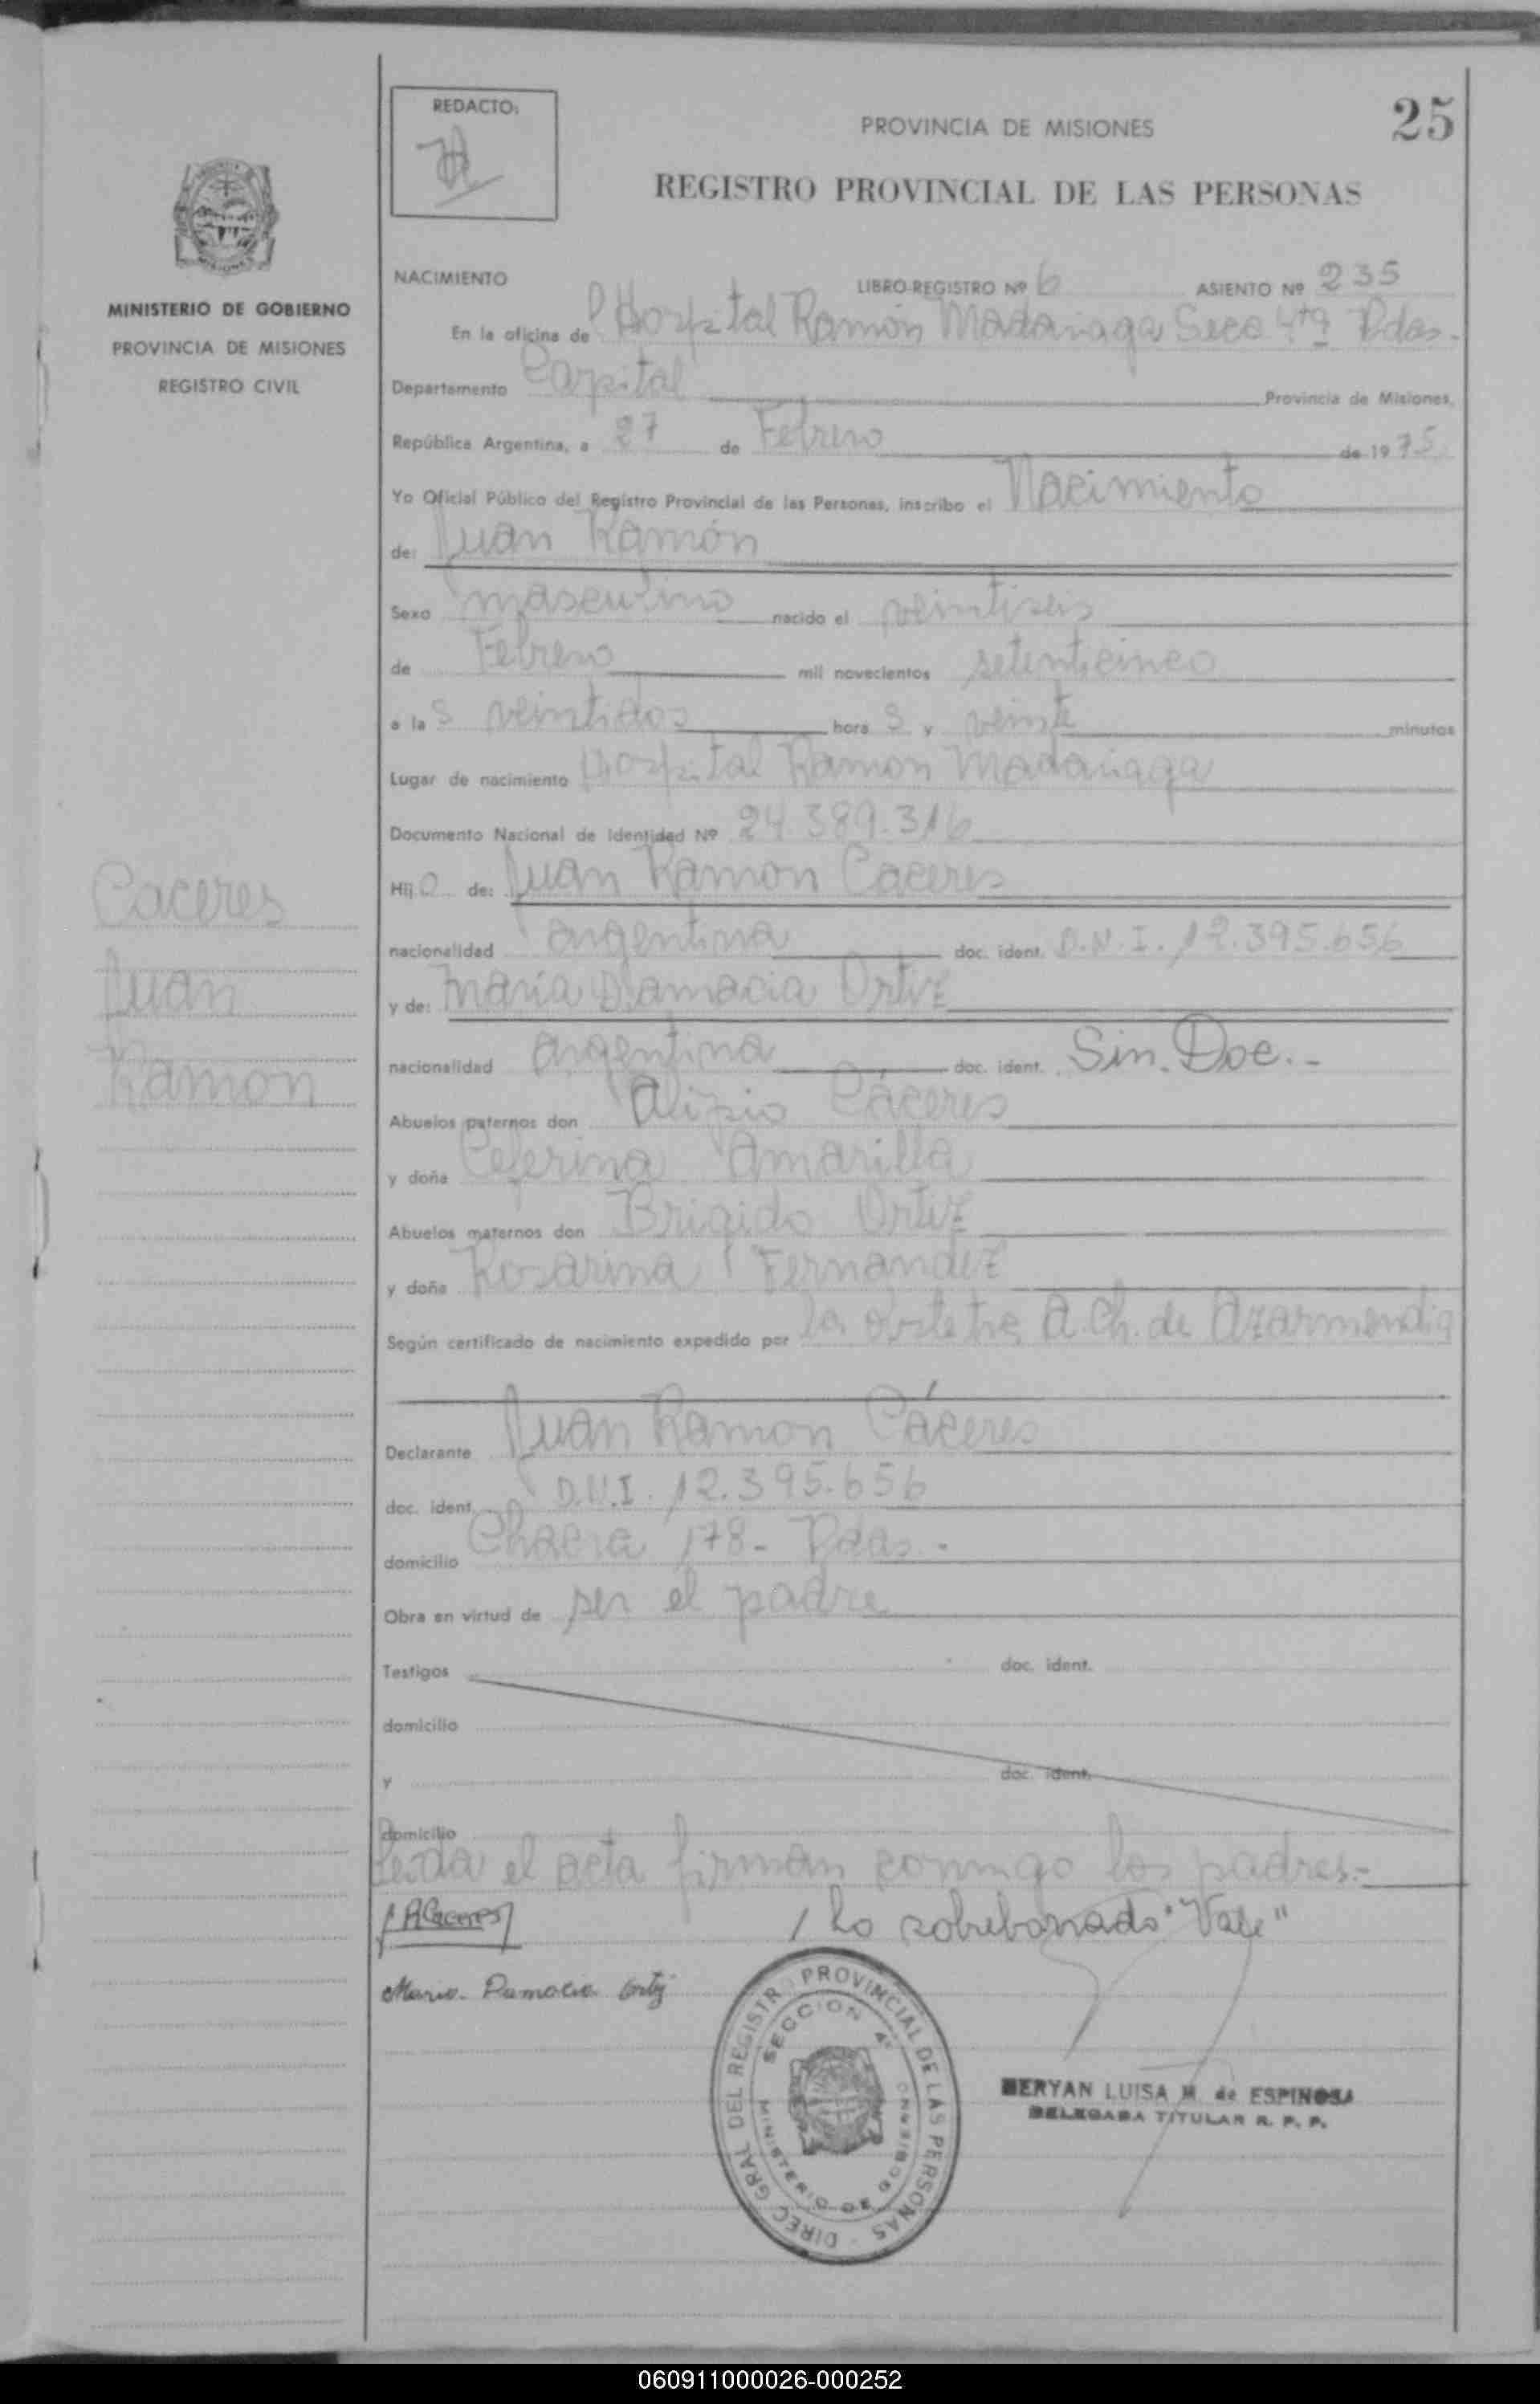 REDACTO:
PROVINCIA DE MISIONES
25
REGISTRO PROVINCIAL DE LAS PERSONAS
MINISTERIO DE GOBIERNO
PROVINCIA DE MISIONES
REGISTRO CIVIL
NACIMIENTO LIBRO-REGISTRO Nº 6 ASIENTO Nº 235
En la oficina de Hospital Ramón Madariaga Secc 4ta Pdas.
Departamento Capital Provincia de Misiones,
República Argentina, a 27 de Febrero de 1975
Yo Oficial Público del Registro Provincial de las Personas, inscribo el Nacimiento
de: Juan Ramón
Sexo masculino nacido el veintiseis
de Febrero mil novecientos setenticinco
a las veintidos horas y veinte minutos
Lugar de nacimiento Hospital Ramon Madariaga
Documento Nacional de Identidad Nº 24.389.316
Hijo de: Juan Ramon Caceres
nacionalidad argentina doc. ident. D.N.I. 12.395.656
y de: María Damacia Ortiz
nacionalidad argentina doc. ident. Sin. Doc.-
Abuelos paternos don Alipio Cáceres
y doña Ceferina Amarilla
Abuelos maternos don Brigido Ortiz
y doña Rosarina Fernandez
Según certificado de nacimiento expedido por la obstetra A. Ch. de Azarmendia
Declarante Juan Ramon Cáceres
doc. ident. D.N.I. 12.395.656
domicilio Chacra 178- Pdas.
Obra en virtud de ser el padre
Testigos doc. ident.
domicilio
y doc. ident.
domicilio
Leida el acta firman conmigo los padres.-
Caceres
Juan
Ramon
Caceres / Lo sobreborrado "Vale"
Maria Damacia Ortiz
DIREC. GRAL DEL REGISTRO PROVINCIAL DE LAS PERSONAS
SECCION 4ª
MINISTERIO DE GOBIERNO
MERYAN LUISA M. de ESPINOSA
DELEGADA TITULAR R. P. P.
060911000026-000252